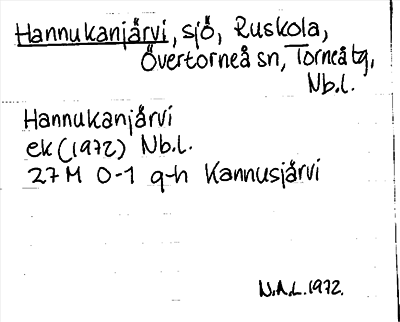 Hannukanjärvi, sjö, Ruskola,
Övertorneå sn, Torneå tg,
Nb.l.
Hannukanjärvi
ek (1972) Nb.l.
27M 0-1 g-h Kannusjärvi
N.A.L. 1972.